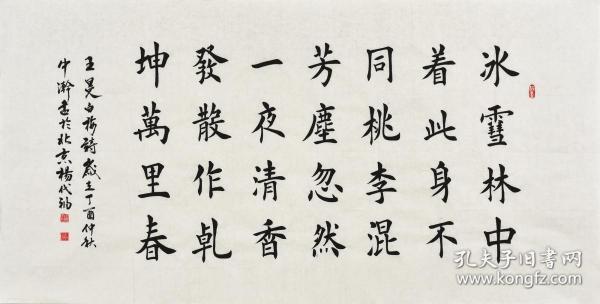 冰雪林中
着此身不
同桃李混
芳塵忽然
一夜清香
發散作乹
坤萬里春
王冕白梅詩歲在丁酉仲秋
書於北京楊代
孔夫子旧书网
www.kongfz.com